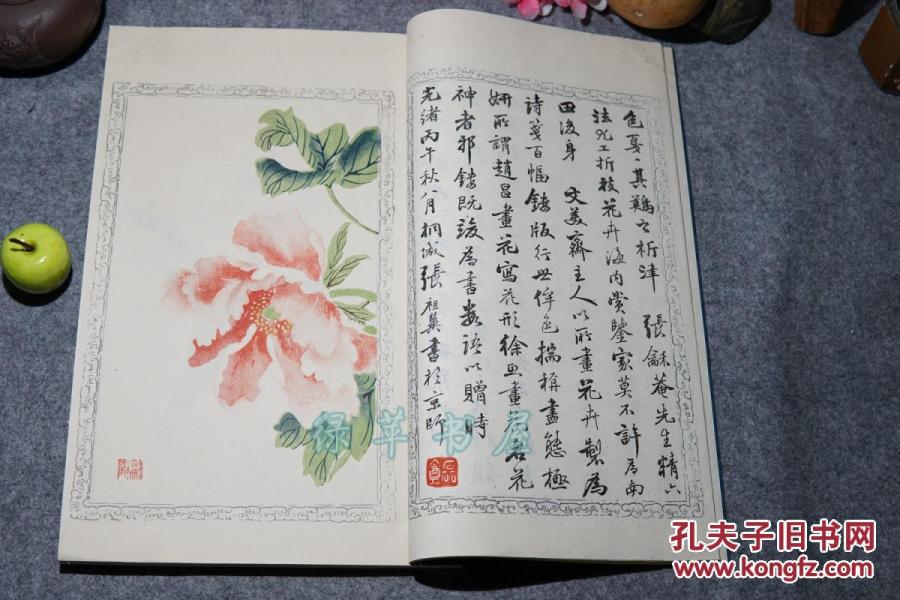 色戛〻其難之析津 張龢菴先生精六
法尤工折枝花卉海内賞鑒家莫不許爲南
田後身 文美齋主人以所畫花卉製爲
詩箋百幅鏤版行世侔色揣稱盡態極
妍所謂趙昌畫花寫花形徐熙畫花花
神者邪鏤既竣爲書數語以贈時
光緒丙午秋八月桐城張祖翼書於京師
磊盦
绿苹书屋
孔夫子旧书网
www.kongfz.com